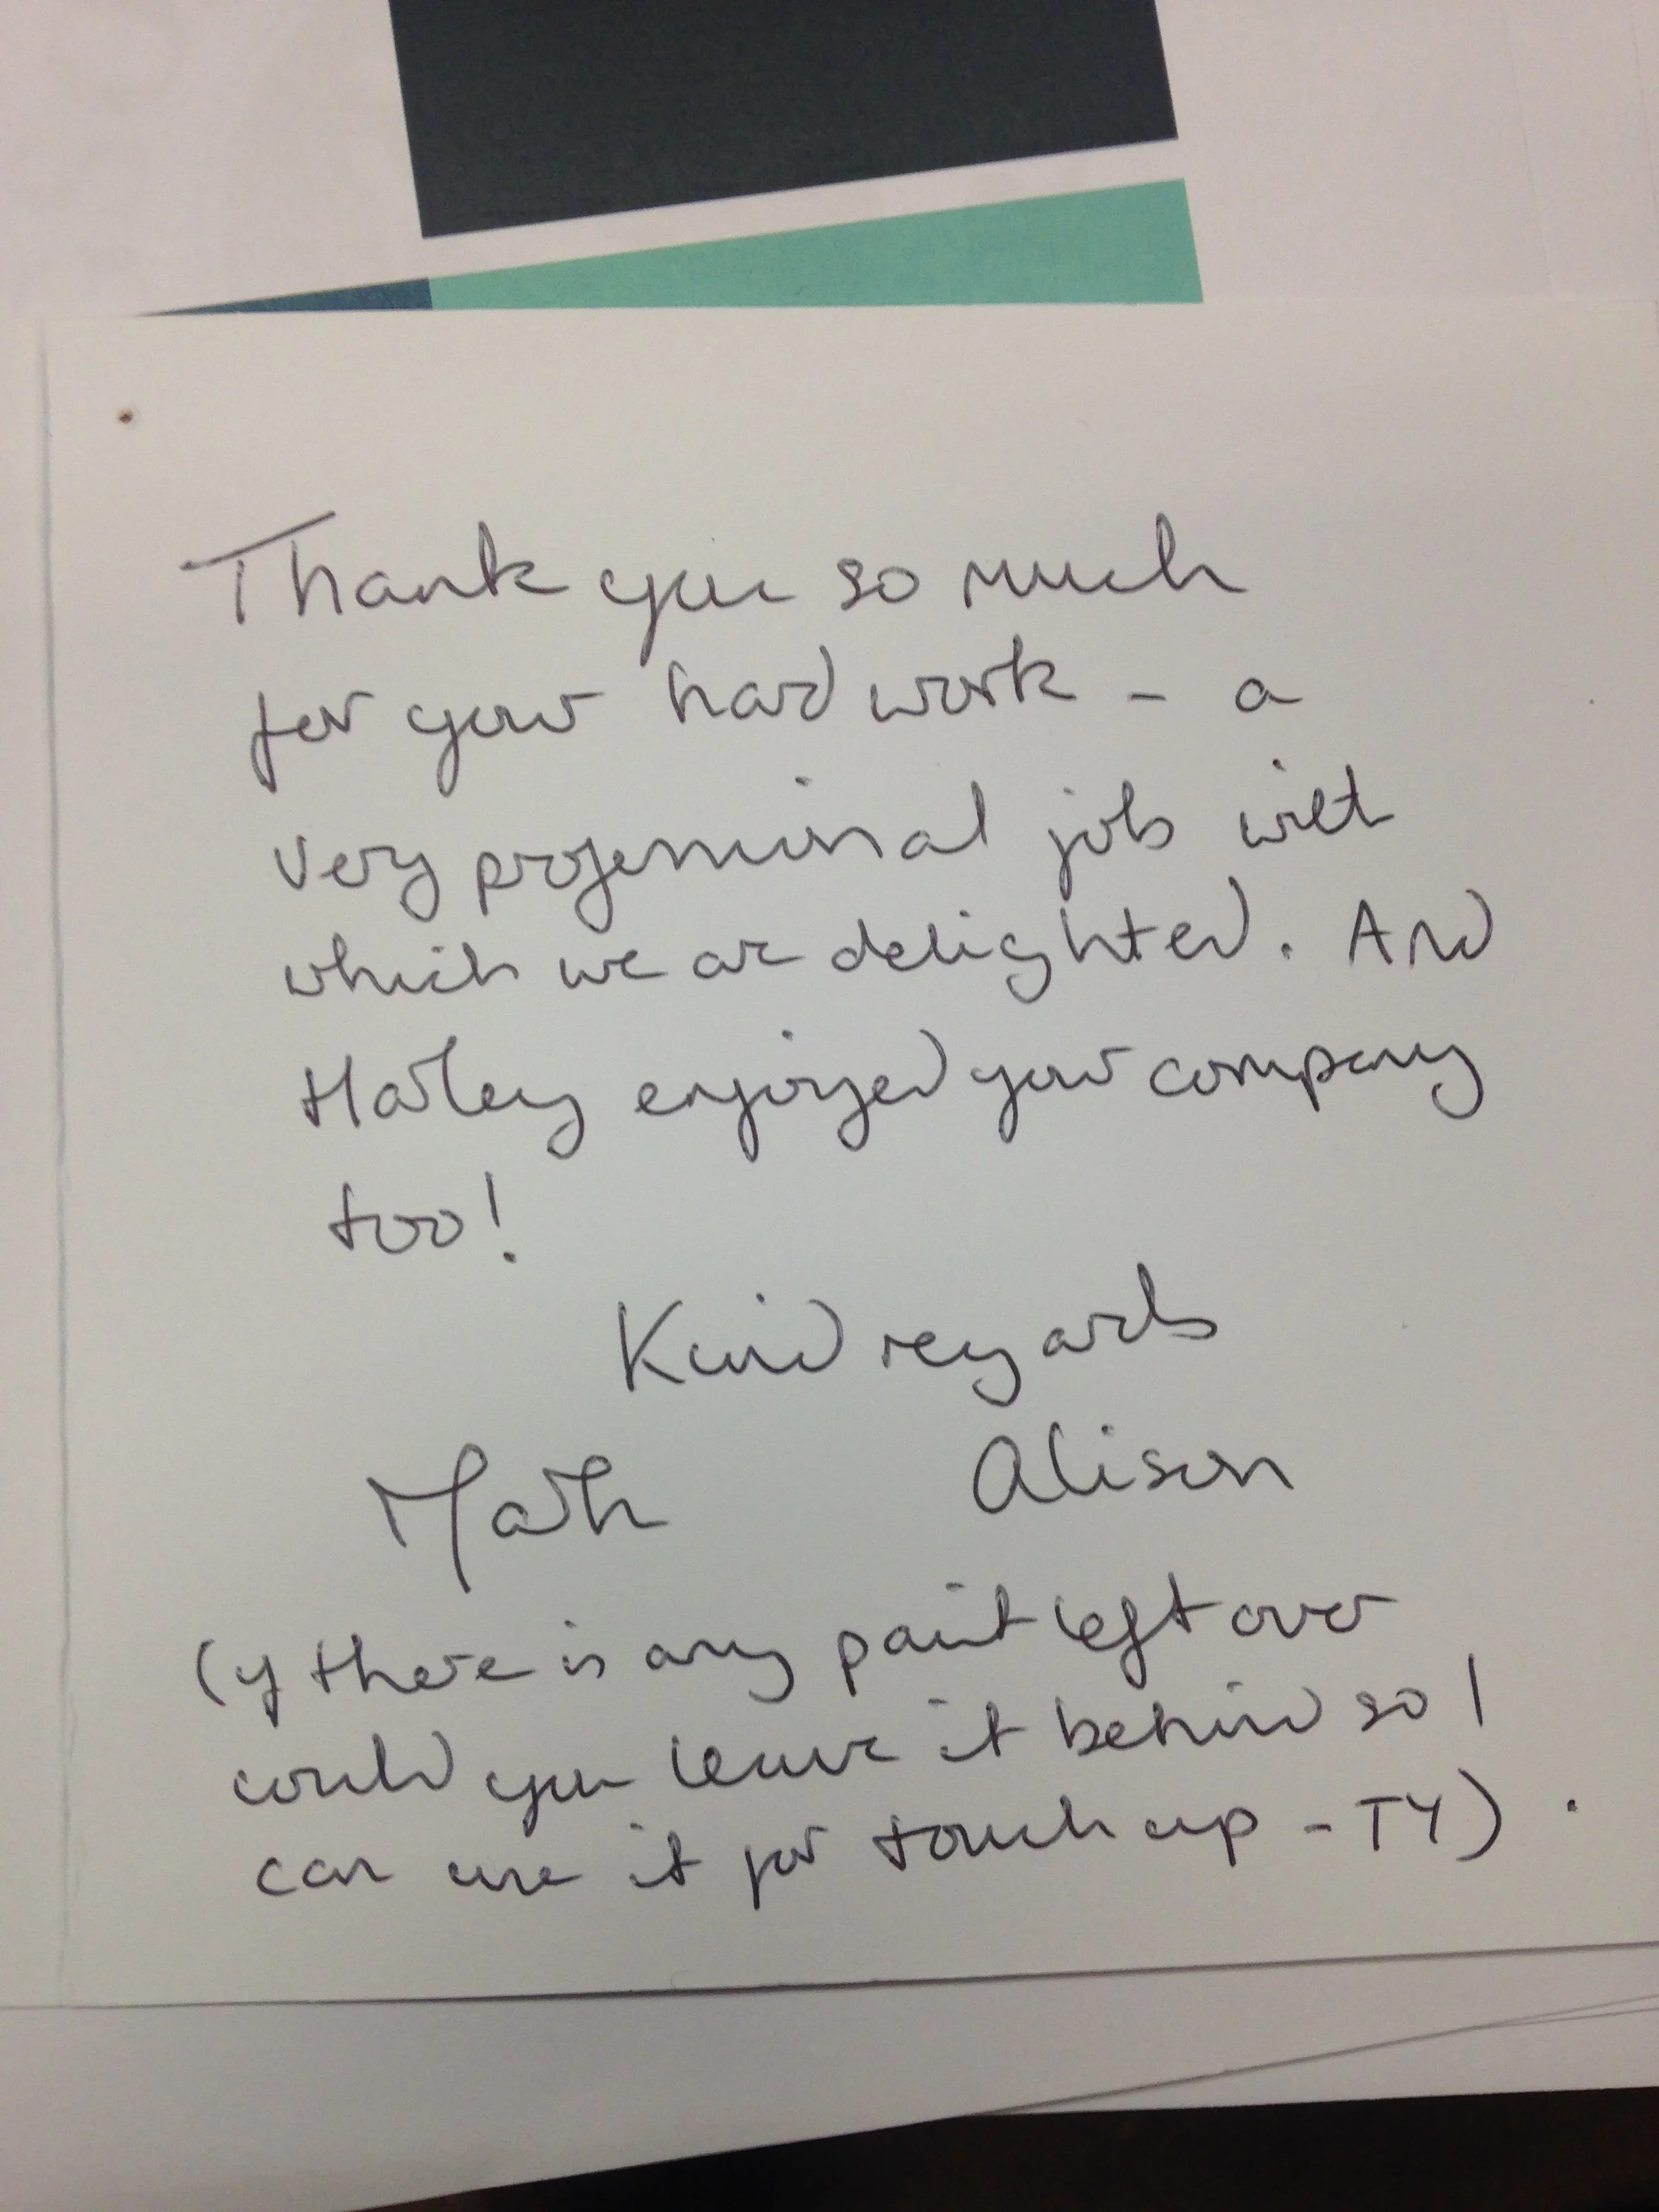 Thank you so much
for your hard work - a
very professional job with
which we are delighted. And
Harley enjoyed your company
too!
Kind regards
Mark Alison
(if there is any paint left over
could you leave it behind so I
can use it for touch up - TY).